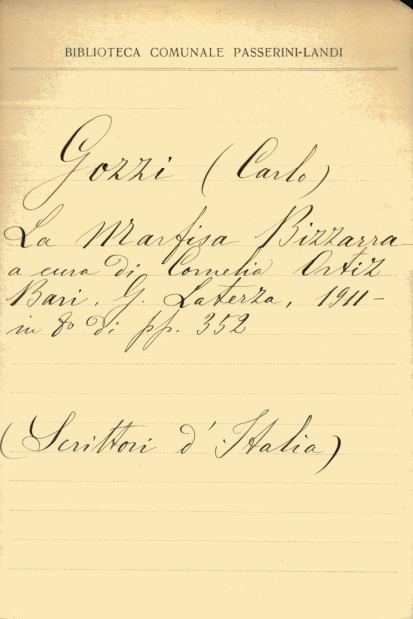 BIBLIOTECA COMUNALE PASSERINI-LANDI
Gozzi (Carlo)
La Marfisa Bizzarra -
a cura di Cornelia Ortiz
Bari. G. Laterza, 1911 -
in 8º di pp. 352
(Scrittori d'Italia)